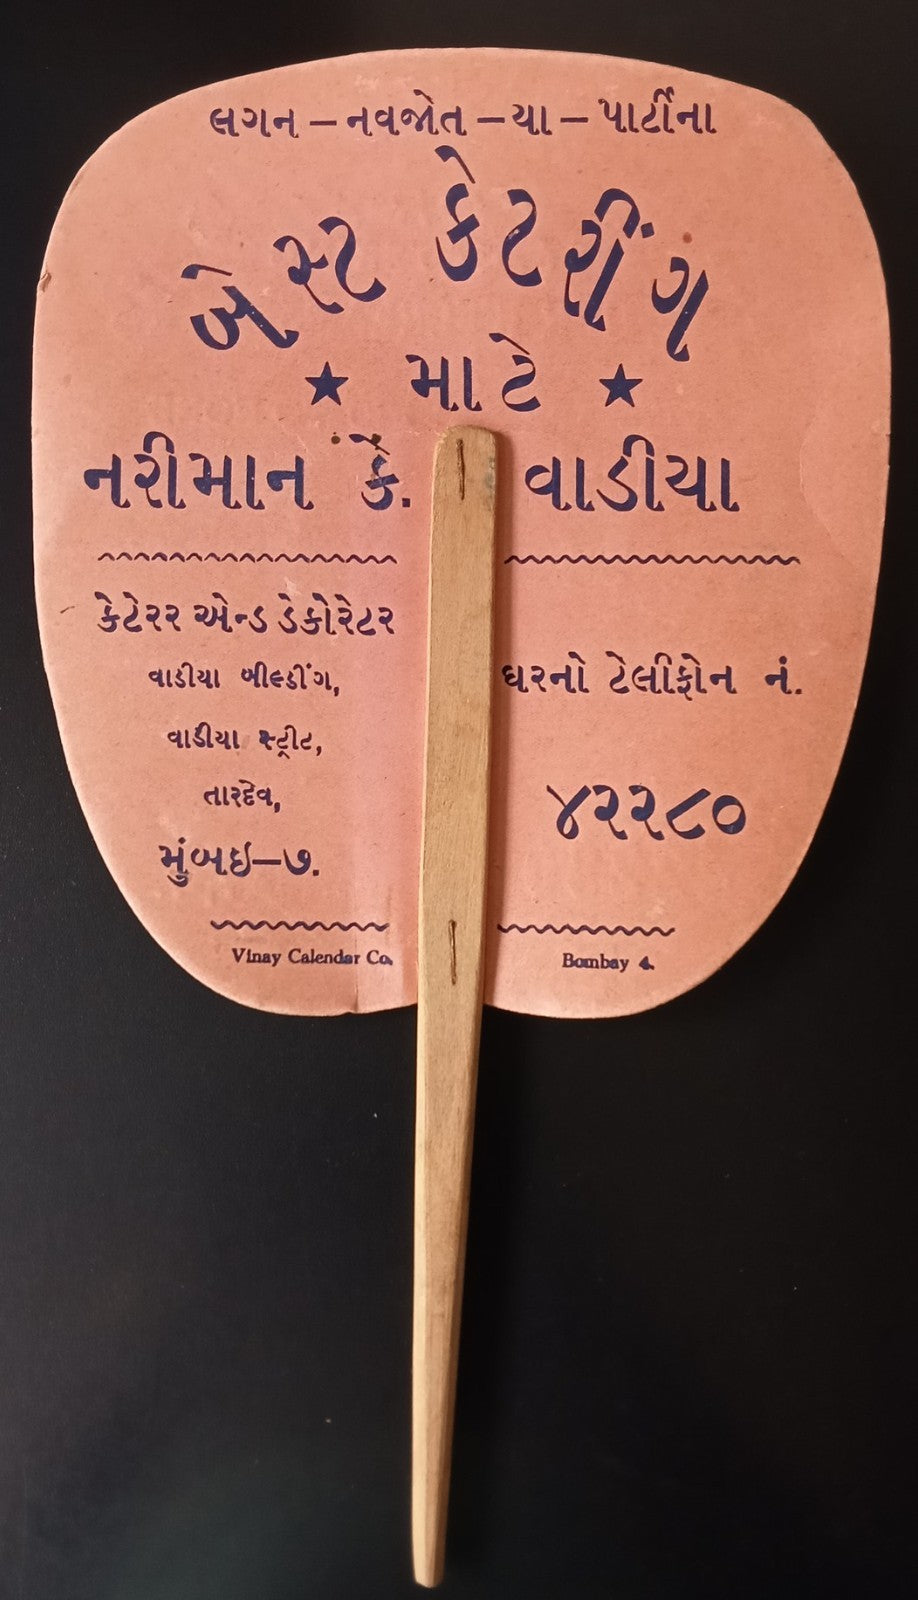 લગન – નવજોત – યા – પાર્ટીના
બેસ્ટ કેટરીંગ
★ માટે ★
નરીમાન કે. વાડીયા
કેટેરર એન્ડ ડેકોરેટર
વાડીયા બીલ્ડીંગ,
વાડીયા સ્ટ્રીટ,
તારદેવ,
મુંબઇ–૭.
ઘરનો ટેલીફોન નં.
૪૨૨૮૦
Vinay Calendar Co. Bombay 4.